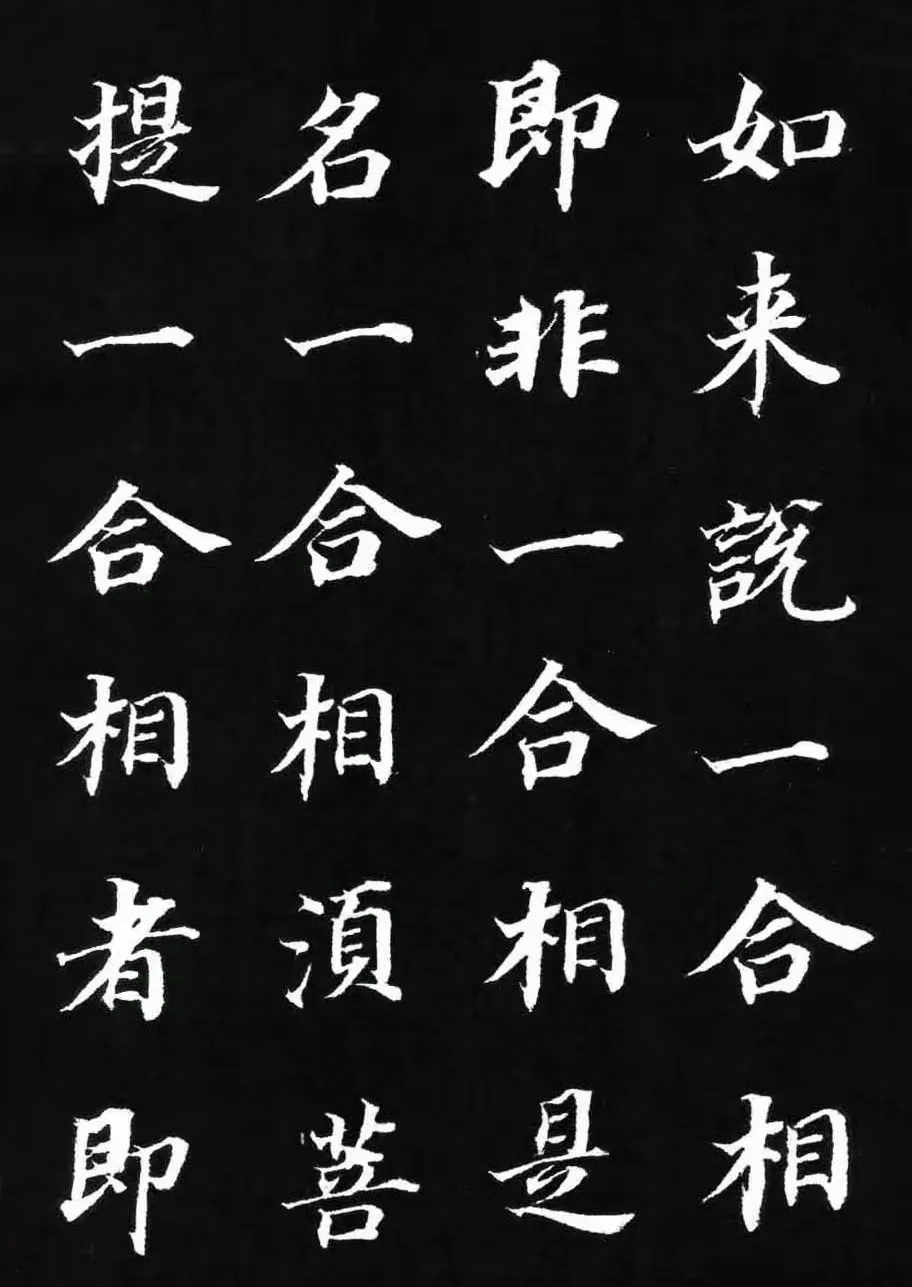 如来說一合相
即非一合相是
名一合相湏菩
提一合相者即